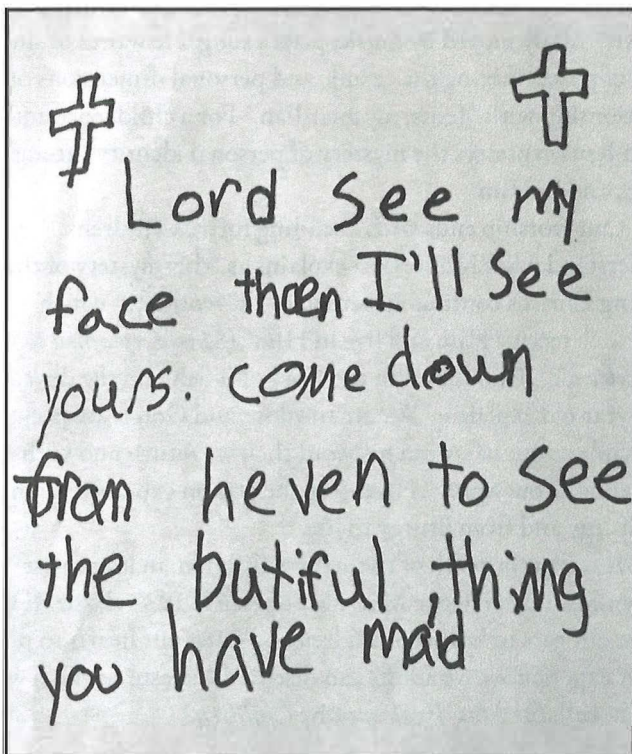 Lord see my
face then I'll see
yours. come down
fran heven to see
the butiful thing
you have mad